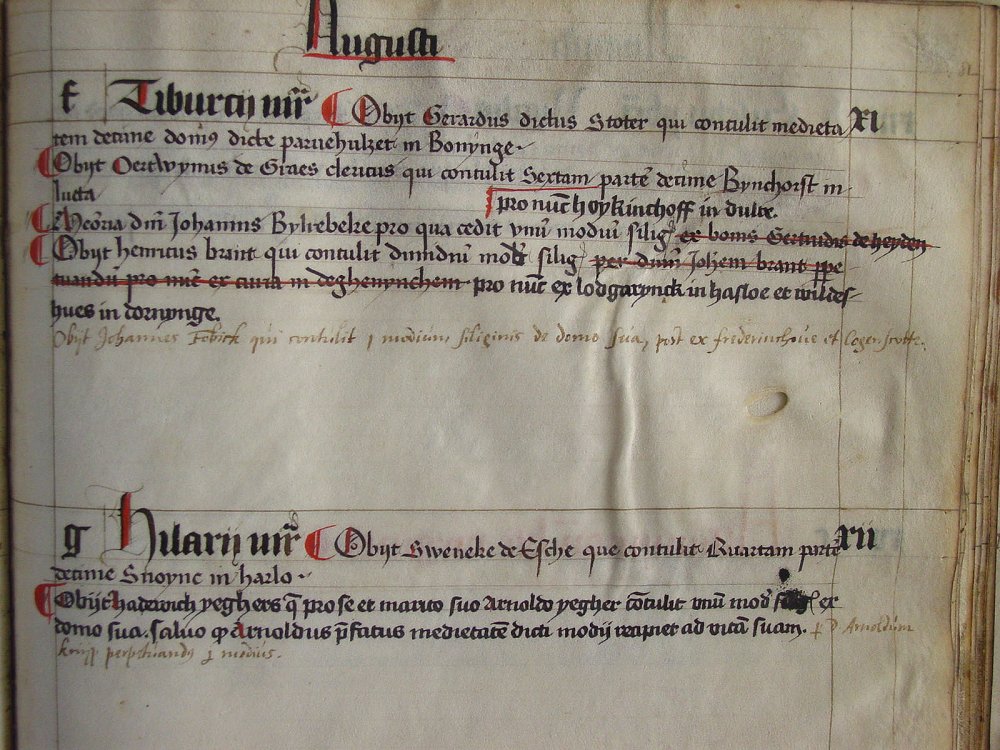 Augusti
f Tiburcij mr̄ Obijt Gerardus dictus Stoter qui contulit medieta XI
tem decime domꝰ dicte paruehulzet in Bonynge.
Obijt Oertwynus de Graes clericus qui contulit Sextam partē decime Bynchorst in
lucta pro nūc hoykinchoff in dulre.
Meōria dn̄i Johannis Bylrebeke pro qua cedit vnū modiū silig ex bonis Gertrudis de heyden
Obijt henricus brant qui contulit dimidiū mod silig per dn̄m Johēm brant ꝑpe
tuandū pro nūc ex curia in deghenynchem pro nūc ex lodgarynck in hasloe et wildes-
hues in dornynge.
Obijt Johannes qui contulit 1 modium siliginis de domo sua, post ex frederinchove et
g Hilarij mr̄ Obijt Sweneke de Esche que contulit Quartam partē XII
decime Snoync in harlo.
Obijt hadewich yeghers q̄ pro se et marito suo Arnoldo yegher cōtulit vnū mod silig ex
domo sua. saluo ꝙ Arnoldus p̄fatus medietatē dicti modij recipiet ad vitā suam. ꝑ D Arnoldum
perpetuandus j modius.